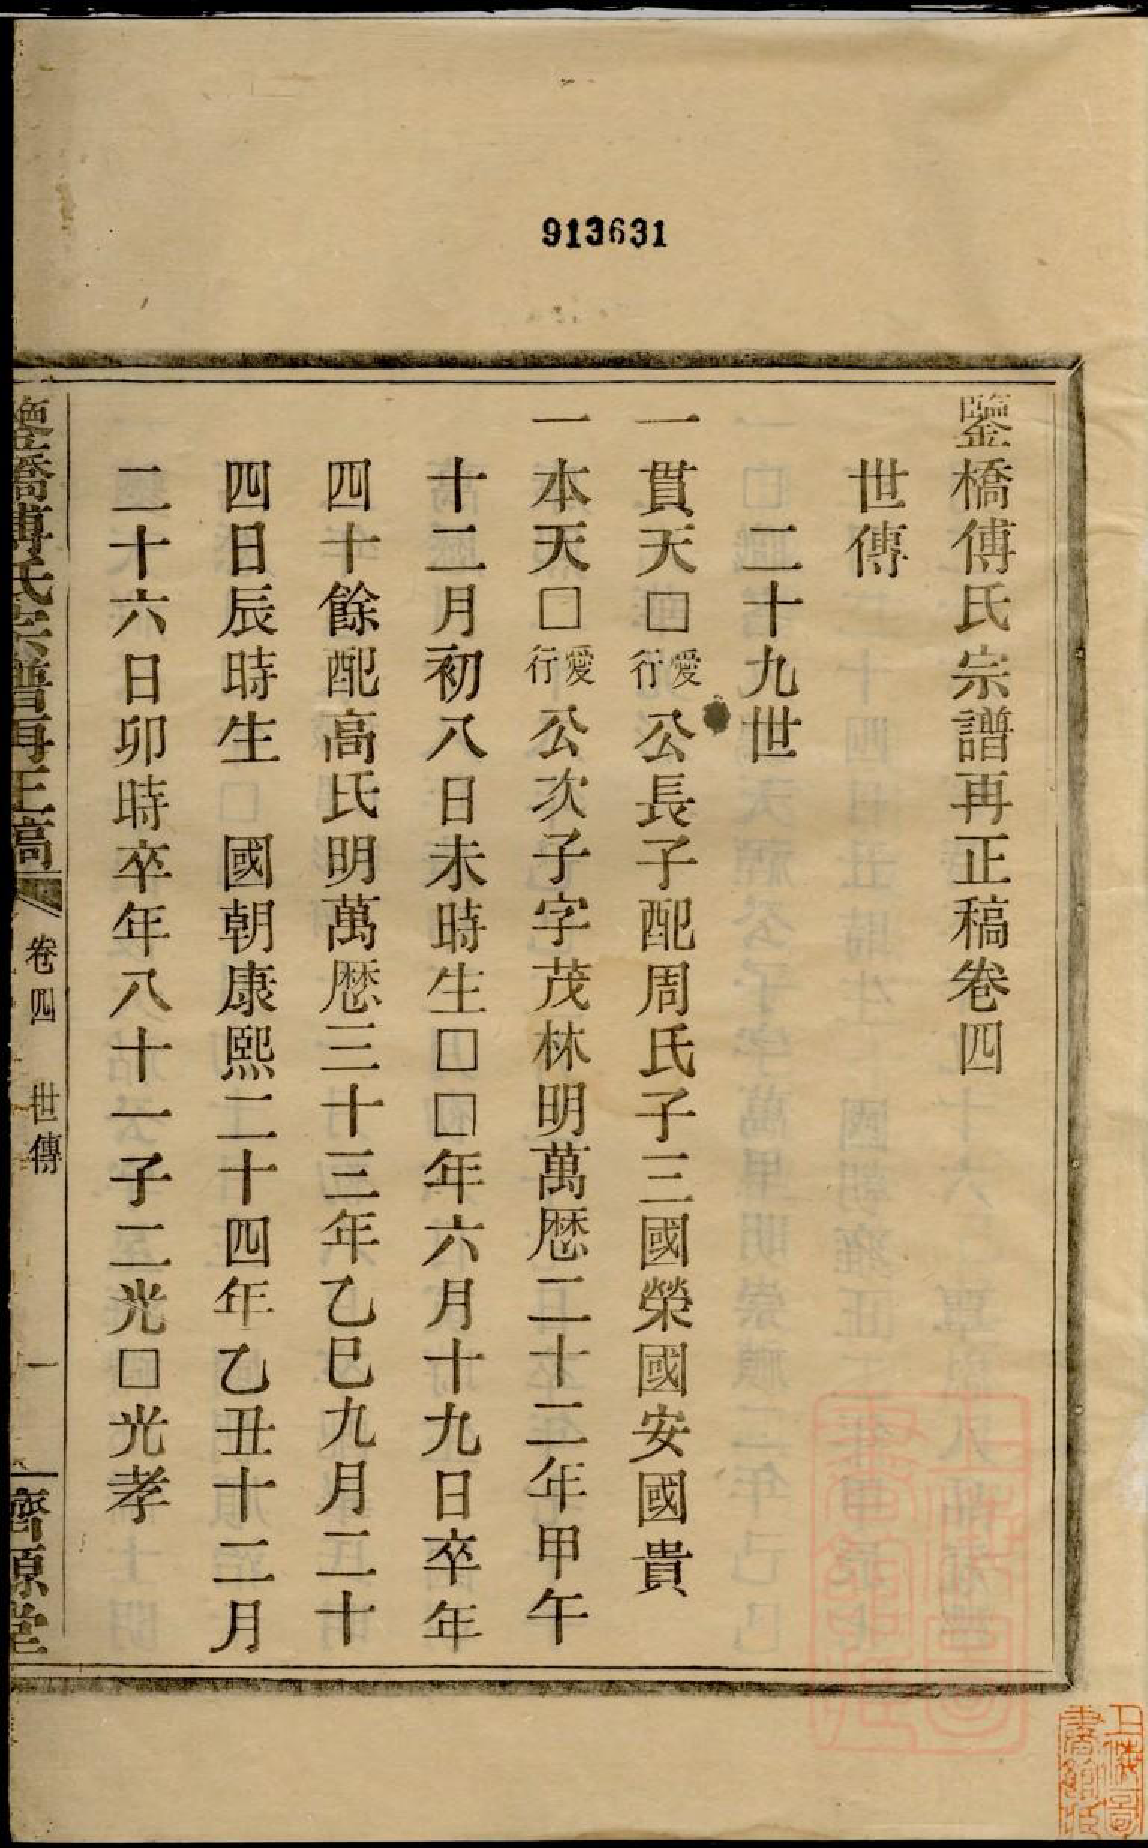 913631
鑒橋傅氏宗譜再正稿卷四
世傳
二十九世
一貫天□愛行公長子配周氏子三國榮國安國貴
一本天□愛行公次子字茂林明萬厯二十二年甲午
十二月初八日未時生□□年六月十九日卒年
四十餘配高氏明萬厯三十三年乙巳九月二十
四日辰時生　國朝康熙二十四年乙丑十二月
二十六日卯時卒年八十一子二光□光孝
鑒橋傅氏宗譜再正稿　卷四　世傳　一　濟源堂